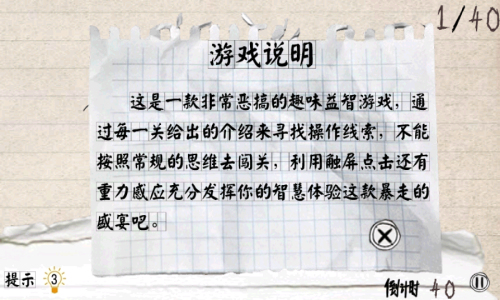 1/40
游戏说明
这是一款非常恶搞的趣味益智游戏，通
过每一关给出的介绍来寻找操作线索，不能
按照常规的思维去闯关，利用触屏点击还有
重力感应充分发挥你的智慧体验这款暴走的
盛宴吧。
提示 3
倒计时 40